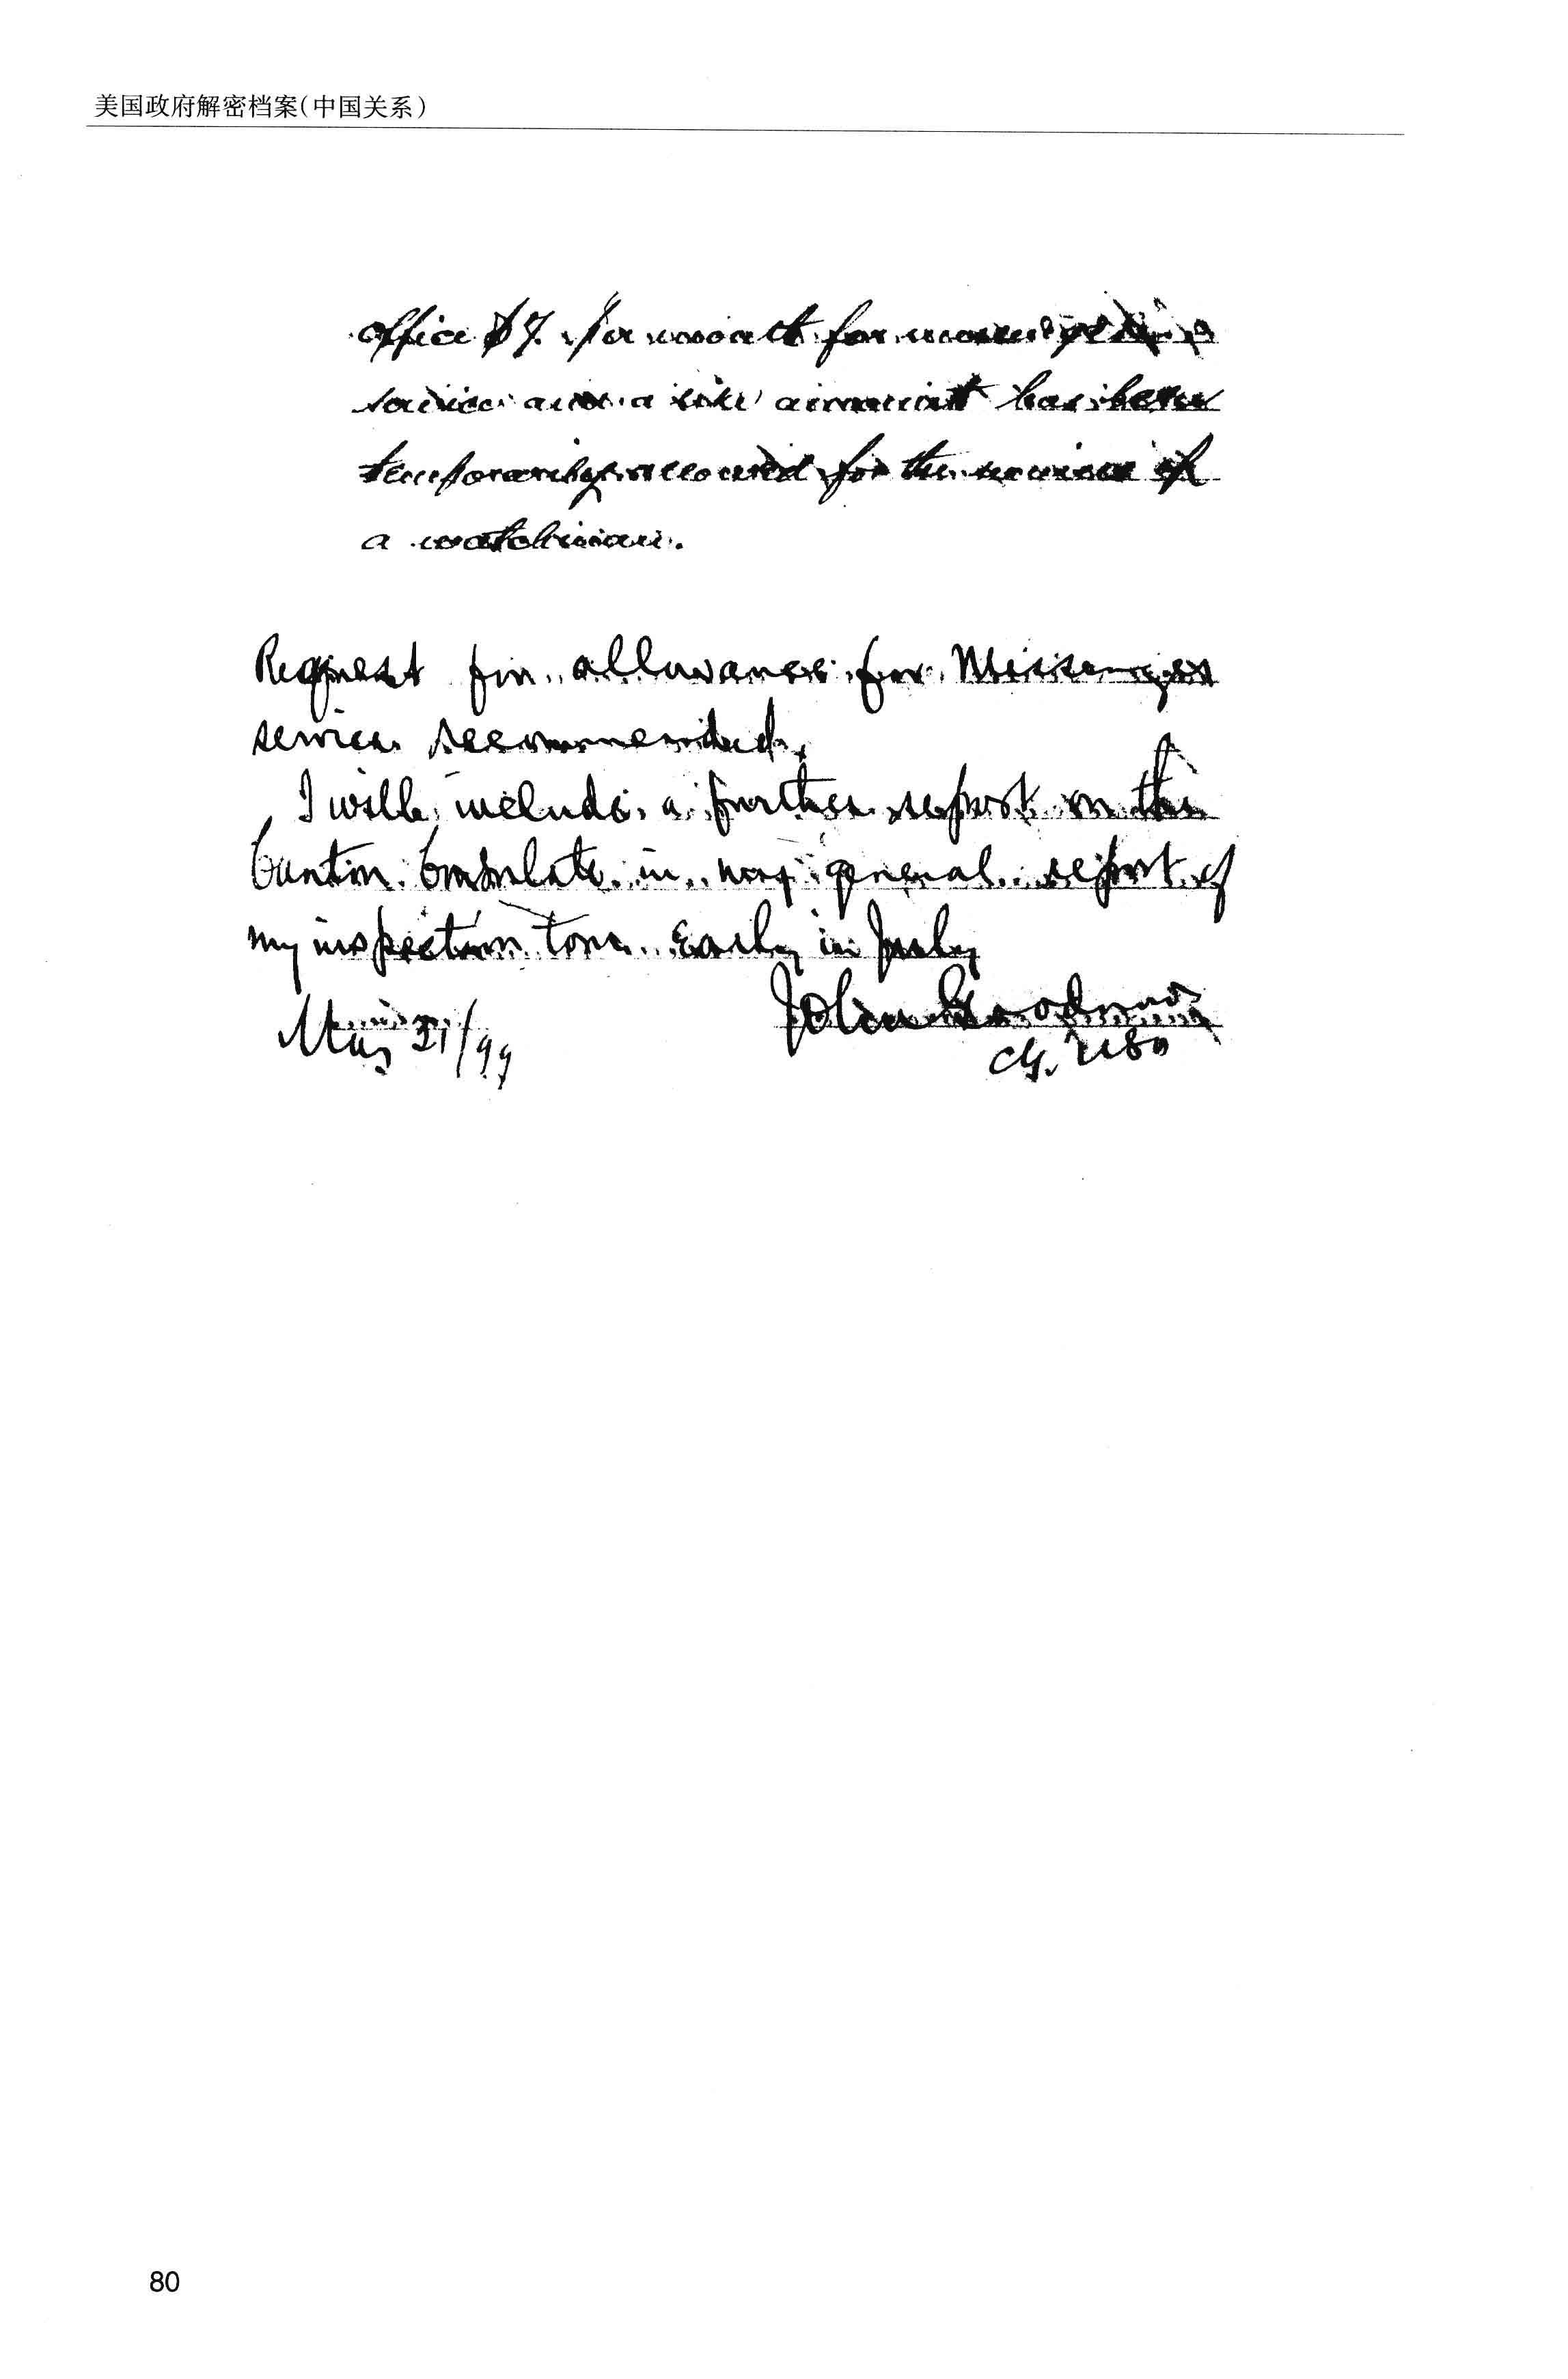 美国政府解密档案(中国关系)
office $7. per month for messenger
service and a like amount has been
temporarily allowed for the services of
a watchman.
Request for allowance for Messenger
service recommended.
I will include a further report on the
Canton Consulate in my general report of
my inspection tour early in July
John Goodnow
May 31/99
CG. USA
80